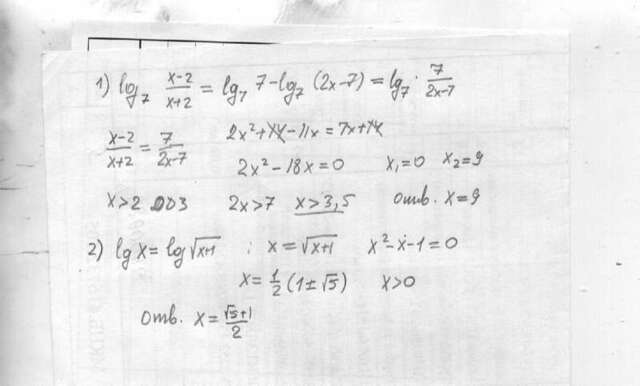 1) log₇ (x-2)/(x+2) = lg₇ 7 - log₇ (2x-7) = lg₇ · 7/(2x-7)
(x-2)/(x+2) = 7/(2x-7) 2x²+14-11x = 7x+14
2x²-18x=0 x₁=0 x₂=9
x>2 ОДЗ 2x>7 x>3,5 Отв. x=9
2) lg x = log √(x+1) ; x = √(x+1) x²-x-1=0
x = 1/2 (1±√5) x>0
Отв. x = (√5+1)/2